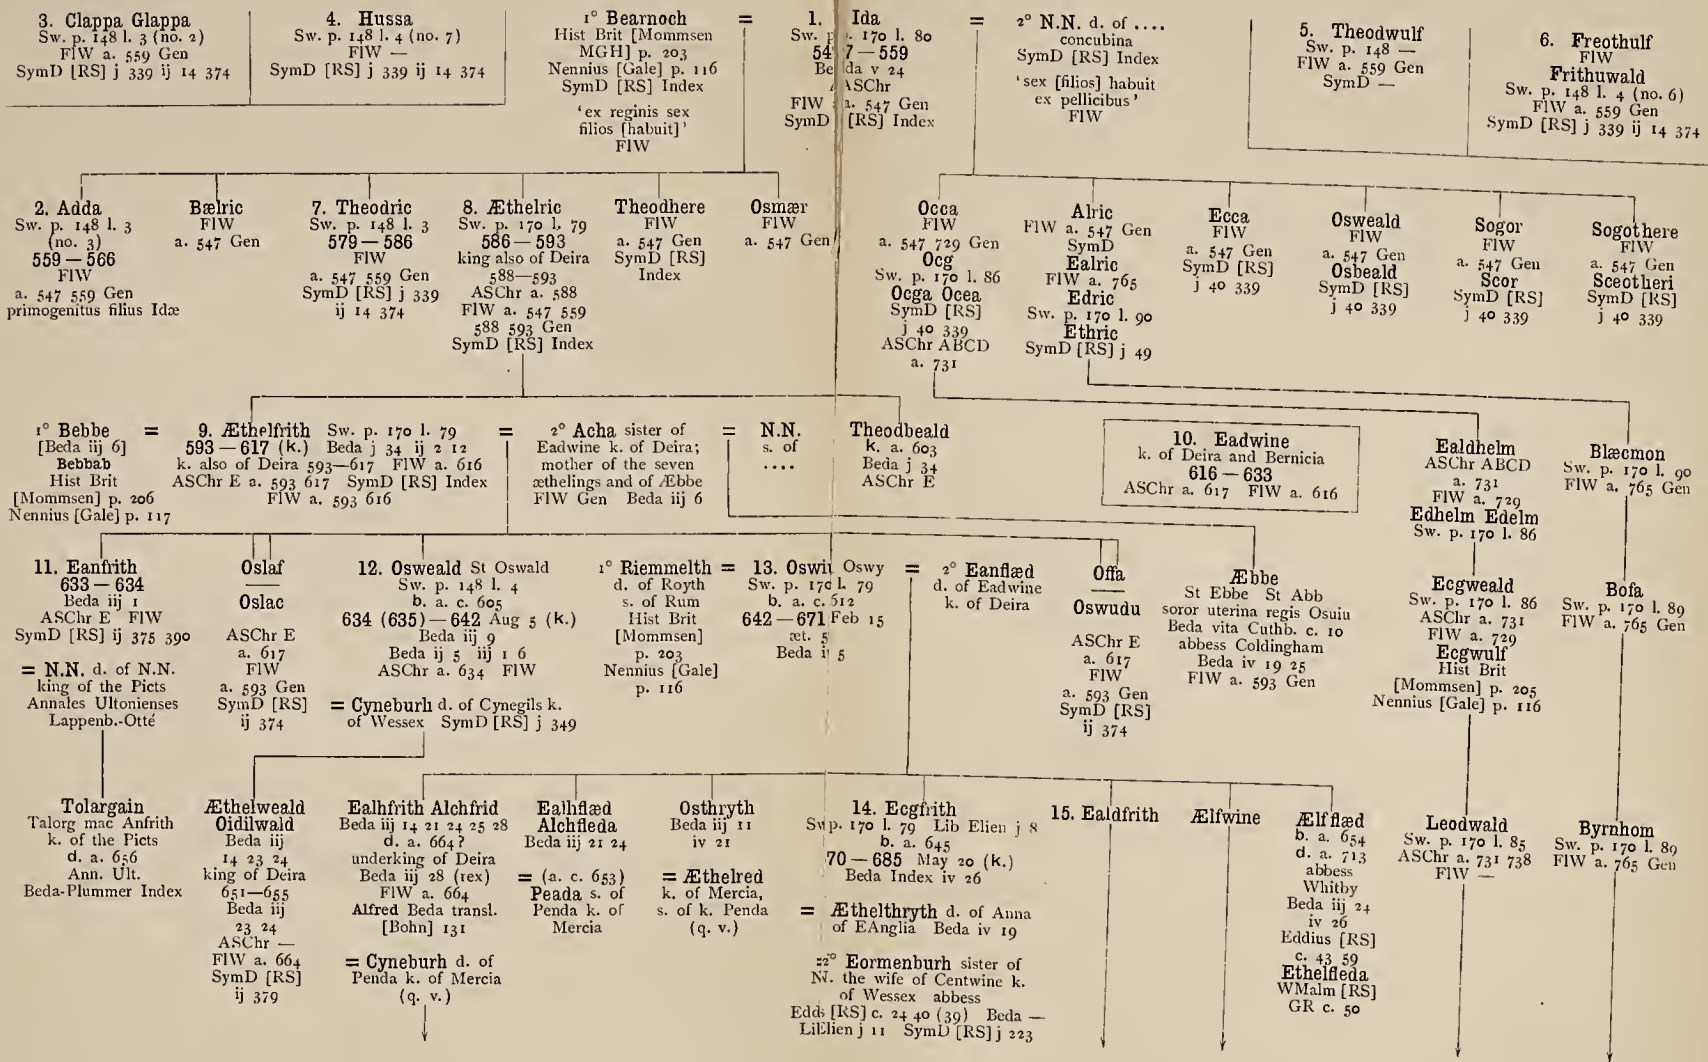 3. Clappa Glappa
Sw. p. 148 l. 3 (no. 2)
FlW a. 559 Gen
SymD [RS] j 339 ij 14 374
4. Hussa
Sw. p. 148 l. 4 (no. 7)
FlW —
SymD [RS] j 339 ij 14 374
1° Bearnoch =
Hist Brit [Mommsen
MGH] p. 203
Nennius [Gale] p. 116
SymD [RS] Index
'ex reginis sex
filios [habuit]'
FlW
1. Ida =
Sw. p. 170 l. 80
547—559
Beda v 24
ASChr
FlW a. 547 Gen
SymD [RS] Index
2° N.N. d. of ....
concubina
SymD [RS] Index
'sex [filios] habuit
ex pellicibus'
FlW
5. Theodwulf
Sw. p. 148 —
FlW a. 559 Gen
SymD —
6. Freothulf
FlW
Frithuwald
Sw. p. 148 l. 4 (no. 6)
FlW a. 559 Gen
SymD [RS] j 339 ij 14 374
2. Adda
Sw. p. 148 l. 3
(no. 3)
559—566
FlW
a. 547 559 Gen
primogenitus filius Idæ
Bælric
FlW
a. 547 Gen
7. Theodric
Sw. p. 148 l. 3
579—586
FlW
a. 547 559 Gen
SymD [RS] j 339
ij 14 374
8. Æthelric
Sw. p. 170 l. 79
586—593
king also of Deira
588—593
ASChr a. 588
FlW a. 547 559
588 593 Gen
SymD [RS] Index
Theodhere
FlW
a. 547 Gen
SymD [RS]
Index
Osmær
FlW
a. 547 Gen
Occa
FlW
a. 547 729 Gen
Ocg
Sw. p. 170 l. 86
Ocga Ocea
SymD [RS]
j 40 339
ASChr ABCD
a. 731
Alric
FlW a. 547 Gen
SymD
Ealric
FlW a. 765
Edric
Sw. p. 170 l. 90
Ethric
SymD [RS] j 49
Ecca
FlW
a. 547 Gen
SymD [RS]
j 40 339
Osweald
FlW
a. 547 Gen
Osbeald
SymD [RS]
j 40 339
Sogor
FlW
a. 547 Gen
Scor
SymD [RS]
j 40 339
Sogothere
FlW
a. 547 Gen
Sceotheri
SymD [RS]
j 40 339
1° Bebbe =
[Beda iij 6]
Bebbab
Hist Brit
[Mommsen] p. 206
Nennius [Gale] p. 117
9. Æthelfrith Sw. p. 170 l. 79 =
593—617 (k.) Beda j 34 ij 2 12
k. also of Deira 593—617 FlW a. 616
ASChr E a. 593 617 SymD [RS] Index
FlW a. 593 616
2° Acha sister of =
Eadwine k. of Deira;
mother of the seven
æthelings and of Æbbe
FlW Gen Beda iij 6
N.N.
s. of
....
Theodbeald
k. a. 603
Beda j 34
ASChr E
10. Eadwine
k. of Deira and Bernicia
616—633
ASChr a. 617 FlW a. 616
Ealdhelm
ASChr ABCD
a. 731
FlW a. 729
Edhelm Edelm
Sw. p. 170 l. 86
Blæcmon
Sw. p. 170 l. 90
FlW a. 765 Gen
11. Eanfrith
633—634
Beda iij 1
ASChr E FlW
SymD [RS] ij 375 390
= N.N. d. of N.N.
king of the Picts
Annales Ultonienses
Lappenb.-Otté
Oslaf
Oslac
ASChr E
a. 617
FlW
a. 593 Gen
SymD [RS]
ij 374
12. Osweald St Oswald
Sw. p. 148 l. 4
b. a. c. 605
634 (635)—642 Aug 5 (k.)
Beda iij 9
Beda ij 5 iij 1 6
ASChr a. 634 FlW
= Cyneburh d. of Cynegils k.
of Wessex SymD [RS] j 349
1° Riemmelth =
d. of Royth
s. of Rum
Hist Brit
[Mommsen]
p. 203
Nennius [Gale]
p. 116
13. Oswiu Oswy =
Sw. p. 170 l. 79
b. a. c. 612
642—671 Feb 15
æt. 5
Beda ij 5
2° Eanflæd
d. of Eadwine
k. of Deira
Offa
Oswudu
ASChr E
a. 617
FlW
a. 593 Gen
SymD [RS]
ij 374
Æbbe
St Ebbe St Abb
soror uterina regis Osuiu
Beda vita Cuthb. c. 10
abbess Coldingham
Beda iv 19 25
FlW a. 593 Gen
Ecgweald
Sw. p. 170 l. 86
ASChr a. 731
FlW a. 729
Ecgwulf
Hist Brit
[Mommsen] p. 205
Nennius [Gale] p. 116
Bofa
Sw. p. 170 l. 89
FlW a. 765 Gen
Tolargain
Talorg mac Anfrith
k. of the Picts
d. a. 656
Ann. Ult.
Beda-Plummer Index
Æthelweald
Oidilwald
Beda iij
14 23 24
king of Deira
651—655
Beda iij
23 24
ASChr —
FlW a. 664
SymD [RS]
ij 379
Ealhfrith Alchfrid
Beda iij 14 21 24 25 28
d. a. 664?
underking of Deira
Beda iij 28 (rex)
FlW a. 664
Alfred Beda transl.
[Bohn] 131
= Cyneburh d. of
Penda k. of Mercia
(q. v.)
Ealhflæd
Alchfleda
Beda iij 21 24
= (a. c. 653)
Peada s. of
Penda k. of
Mercia
Osthryth
Beda iij 11
iv 21
= Æthelred
k. of Mercia,
s. of k. Penda
(q. v.)
14. Ecgfrith
Sw p. 170 l. 79 Lib Elien j 8
b. a. 645
70—685 May 20 (k.)
Beda Index iv 26
= Æthelthryth d. of Anna
of EAnglia Beda iv 19
=2° Eormenburh sister of
N. the wife of Centwine k.
of Wessex abbess
Edds [RS] c. 24 40 (39) Beda —
LiElien j 11 SymD [RS] j 223
15. Ealdfrith
Ælfwine
Ælfflæd
b. a. 654
d. a. 713
abbess
Whitby
Beda iij 24
iv 26
Eddius [RS]
c. 43 59
Ethelfleda
WMalm [RS]
GR c. 50
Leodwald
Sw. p. 170 l. 85
ASChr a. 731 738
FlW —
Byrnhom
Sw. p. 170 l. 89
FlW a. 765 Gen